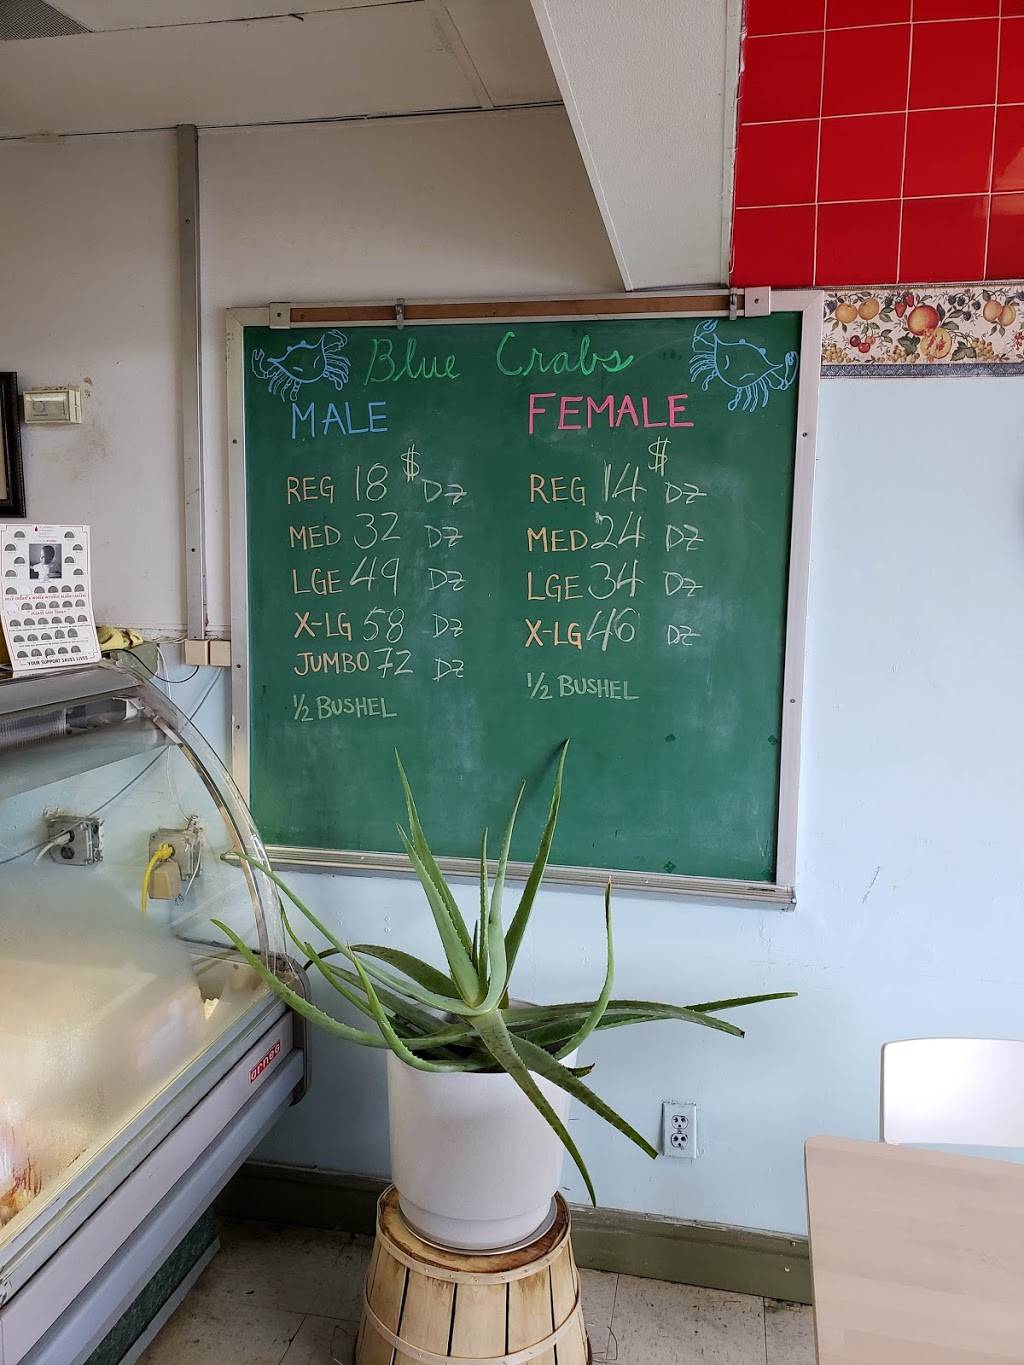 Blue Crabs
MALE
REG 18 $ DZ
MED 32 DZ
LGE 49 DZ
X-LG 58 DZ
JUMBO 72 DZ
1/2 BUSHEL
FEMALE
REG 14 $ DZ
MED 24 DZ
LGE 34 DZ
X-LG 46 DZ
1/2 BUSHEL
YOUR SUPPORT SAVES LIVES
arneg